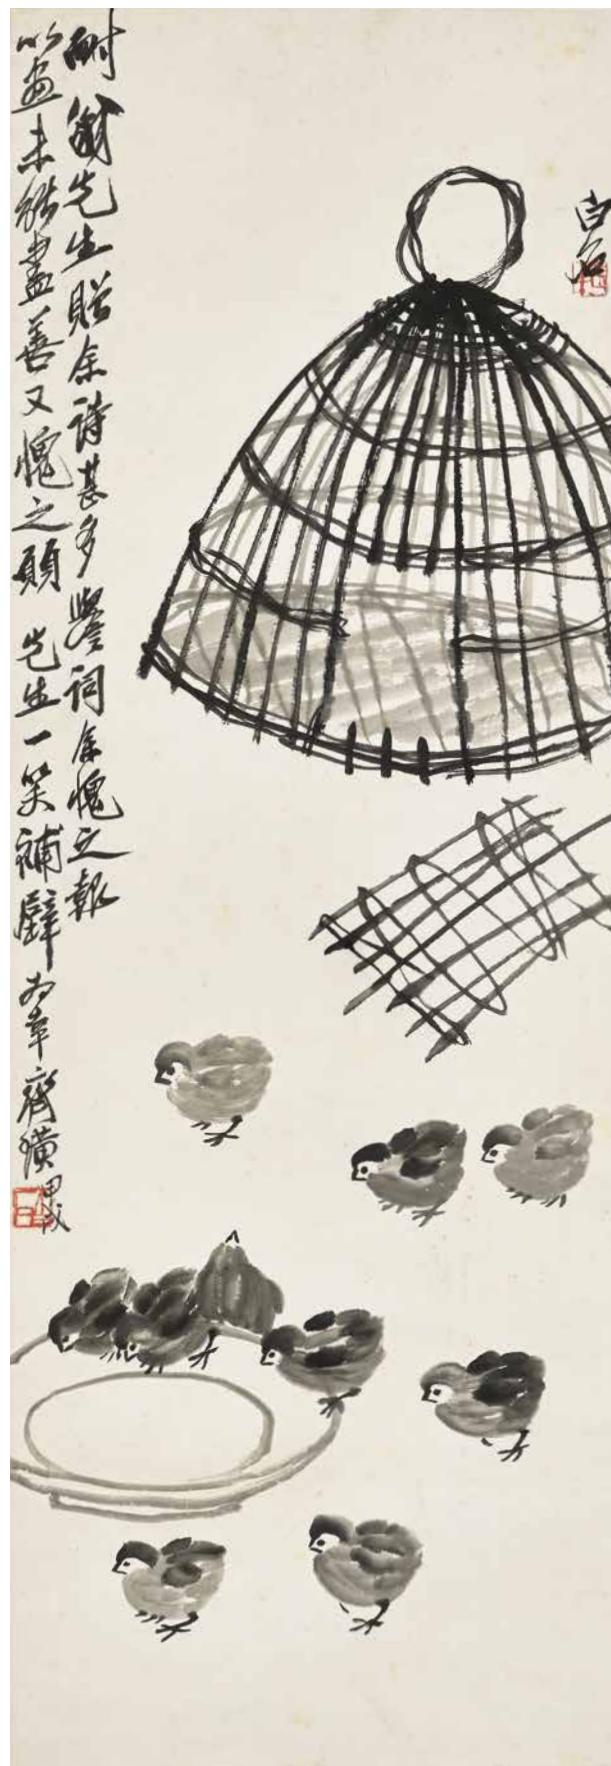 白石
耐先生贈余詩甚多譽詞余愧之報
以畫未能盡善又愧之願 先生一笑補壁為幸齊璜甲戌